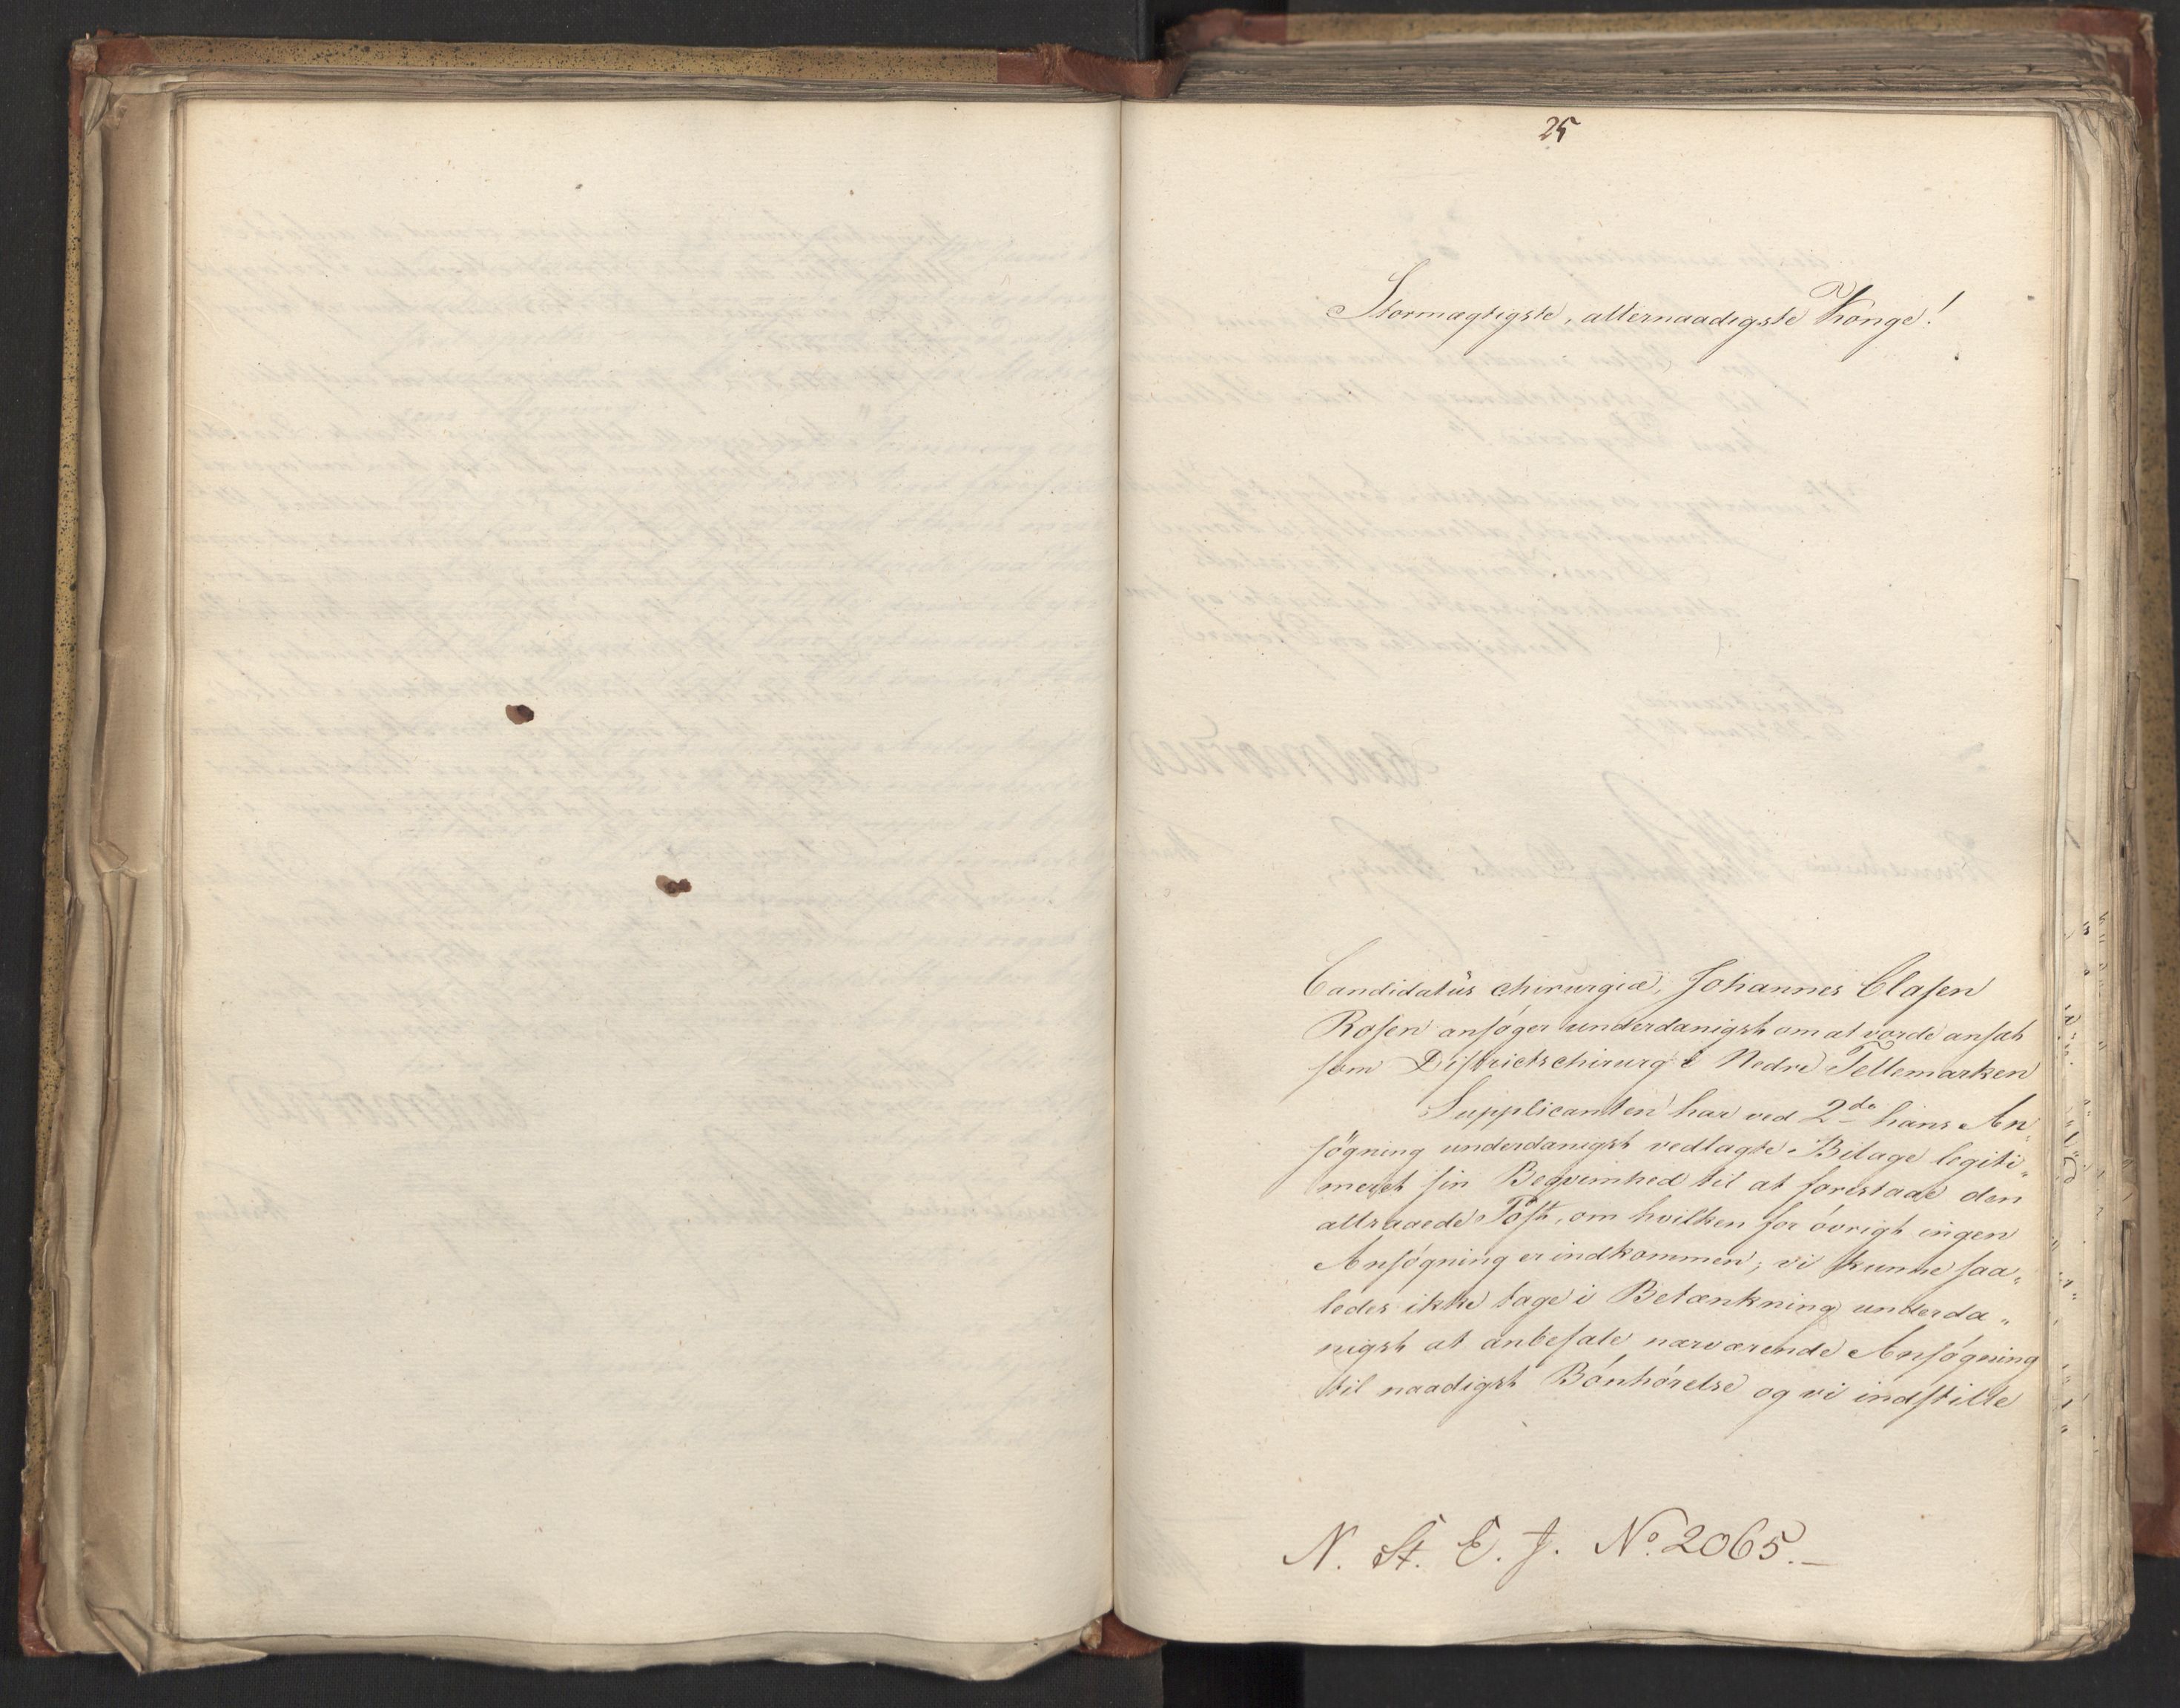 25
Stormægtigste, allernaadigste Konge!
Candidatus chirurgiæ, Johannes Clasen
Rosen ansøger underdanigst om at vorde ansat
som Districtschirurg i Nedre Tellemarken
Supplicanten har ved 2de hans An„
søgning underdanigst vedlagte Bilage legiti„
meret sin Beqvemhed til at forestaae den
attraaede Post, om hvilken for øvrigt ingen
Ansøgning er indkommen; vi kunne saa„
ledes ikke tage i Betænkning underda„
nigst at anbefale nærværende Ansøgning
til naadigst Bønhørelse og vi indstille
N. St. E. J. No. 2065.